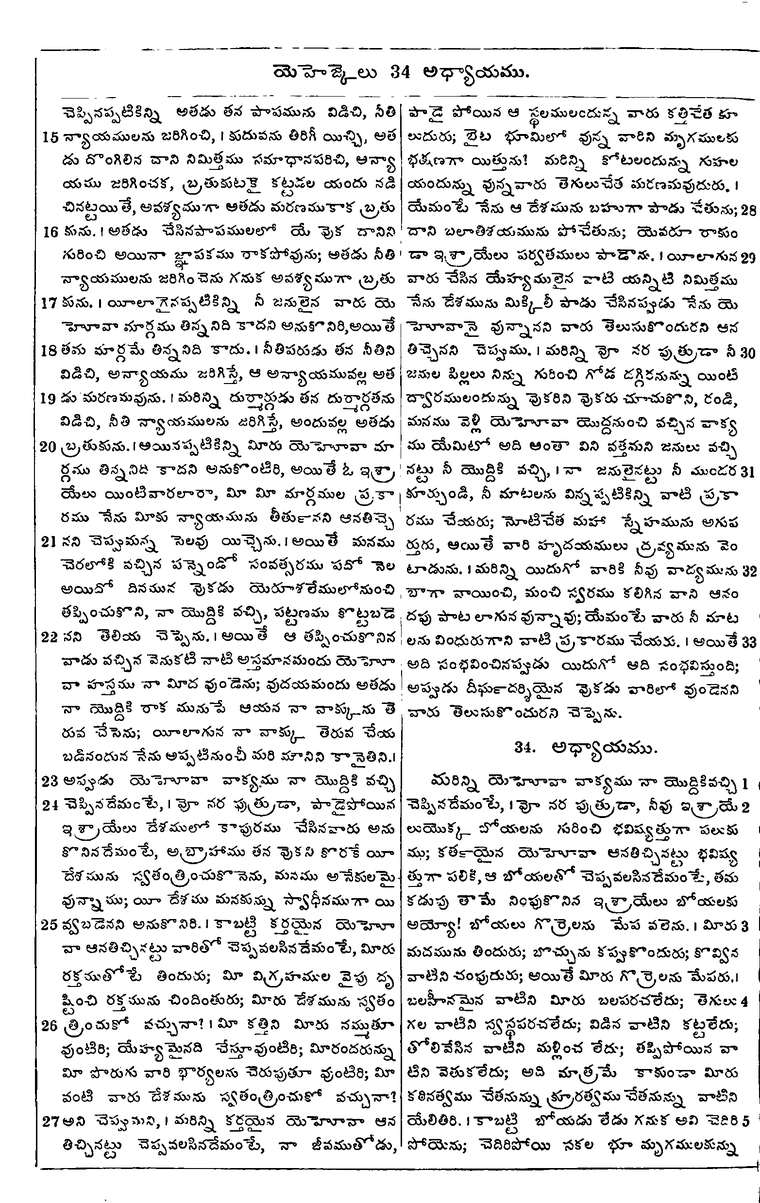 యెహెజ్కేలు 34 అధ్యాయము.
చెప్పినప్పటికిన్ని అతడు తన పాపమును విడిచి, నీతి
15 న్యాయములను జరిగించి, । కుదువను తిరిగీ యిచ్చి, అత
డు దొంగిలిన దాని నిమిత్తము సమాధానపరిచి, అన్యా
యము జరిగించక, బ్రతుకుటకై కట్టడల యందు నడి
చినట్టయితే, అవశ్యముగా అతడు మరణముకాక బ్రతు
16 కును. । అతడు చేసినపాపములలో యే వొక దానిని
గురించి అయినా జ్ఞాపకము రాకపోవును; అతడు నీతి
న్యాయములను జరిగించెను గనుక అవశ్యముగా బ్రతు
17 కును. । యీలాగైనప్పటికిన్ని నీ జనులైన వారు యె
హెూవా మార్గము తిన్ననిది కాదని అనుకొనిరి, అయితే
18 తమ మార్గమే తిన్ననిది కాదు. । నీతిపరుడు తన నీతిని
విడిచి, అన్యాయము జరిగిస్తే, ఆ అన్యాయమువల్ల అత
19 డు మరణమవును. । మరిన్ని దుర్మార్గుడు తన దుర్మార్గతను
విడిచి, నీతి న్యాయములను జరిగిస్తే, అందువల్ల అతడు
20 బ్రతుకును. । అయినప్పటికిన్ని మీరు యెహెూవా మా
ర్గము తిన్ననిది కాదని అనుకొంటిరి, అయితే ఓ ఇశ్రా
యేలు యింటివారలారా, మీ మీ మార్గముల ప్రకా
రము నేను మీకు న్యాయమును తీర్తునని ఆనతిచ్చె
21 నని చెప్పుమన్న సెలవు యిచ్చెను. । అయితే మనము
చెరలోకి వచ్చిన పన్నెండో సంవత్సరము పదో నెల
అయిదో దినమున వొకడు యెరూశలేములోనుంచి
తప్పించుకొని, నా యొద్దికి వచ్చి, పట్టణము కొట్టబడె
22 నని తెలియ చెప్పెను. । అయితే ఆ తప్పించుకొనిన
వాడు వచ్చిన వెనుకటి నాటి అస్తమానమందు యెహెూ
వా హస్తము నా మీద వుండెను; వుదయమందు అతడు
నా యొద్దికి రాక మునుపే ఆయన నా వాక్కును తె
రువ చేసెను; యీలాగున నా వాక్కు తెరువ చేయ
బడినందున నేను అప్పటినుంచీ మరి మౌనిని కానైతిని. ।
23 అప్పుడు యెహెూవా వాక్యము నా యొద్దికి వచ్చి
24 చెప్పినదేమంటే, । వో నర పుత్రుడా, పాడైపోయిన
ఇశ్రాయేలు దేశములో కాపురము చేసినవారు అను
కొనినదేమంటే, అబ్రాహాము తన వొకని కొరకే యీ
దేశమును స్వతంత్రించుకొనెను, మనము అనేకులమై
వున్నాము; యీ దేశము మనకున్ను స్వాధీనముగా యి
25 వ్వబడెనని అనుకొనిరి. । కాబట్టి కర్తయైన యెహెూ
వా ఆనతిచ్చినట్టు వారితో చెప్పవలసినదేమంటే, మీరు
రక్తముతోటే తిందురు; మీ విగ్రహముల వైపు దృ
ష్టించి రక్తమును చిందింతురు; మీరు దేశమును స్వతం
26 త్రించుకో వచ్చునా? । మీ కత్తిని మీరు నమ్ముతూ
వుంటిరి; యేహ్యమైనది చేస్తూవుంటిరి; మీరందరున్ను
మీ పొరుగు వారి భార్యలను చెరుపుతూ వుంటిరి; మీ
వంటి వారు దేశమును స్వతంత్రించుకో వచ్చునా?
27 అని చెప్పుమని, । మరిన్ని కర్తయైన యెహెూవా ఆన
తిచ్చినట్టు చెప్పవలసినదేమంటే, నా జీవముతోడు,
పాడై పోయిన ఆ స్థలములందున్న వారు కత్తిచేత కూ
లుదురు; బైట భూమిలో వున్న వారిని మృగములకు
భక్షణగా యిత్తును! మరిన్ని కోటలందున్ను గుహల
యందున్ను వున్నవారు తెగులుచేత మరణమవుదురు. ।
యేమంటే నేను ఆ దేశమును బహుగా పాడు చేతును; 28
దాని బలాతిశయమును పోచేతును; యెవరూ రాకుం
డా ఇశ్రాయేలు పర్వతములు పాడౌను. । యీలాగున 29
వారు చేసిన యేహ్యములైన వాటి యన్నిటి నిమిత్తము
నేను దేశమును మిక్కిలీ పాడు చేసినప్పుడు నేను యె
హెూవానై వున్నానని వారు తెలుసుకొందురని ఆన
తిచ్చెనని చెప్పుము. । మరిన్ని వో నర పుత్రుడా నీ 30
జనుల పిల్లలు నిన్ను గురించి గోడ దగ్గిరనున్ను యింటి
ద్వారములందున్ను వొకరిని వొకరు చూచుకొని, రండి,
మనము వెళ్లి యెహెూవా యొద్దనుంచి వచ్చిన వాక్య
ము యేమిటో అది అంతా విని వత్తమని జనులు వచ్చి
నట్టు నీ యొద్దికి వచ్చి, । నా జనులైనట్టు నీ ముందర 31
కూర్చుండి, నీ మాటలను విన్నప్పటికిన్ని వాటి ప్రకా
రము చేయరు; నోటిచేత మహా స్నేహమును అగుప
ర్తురు, అయితే వారి హృదయములు ద్రవ్యమును వెం
టాడును. । మరిన్ని యిదుగో వారికి నీవు వాద్యమును 32
బాగా వాయించి, మంచి స్వరము కలిగిన వాని ఆనం
దపు పాట లాగున వున్నావు; యేమంటే వారు నీ మాట
లను విందురుగాని వాటి ప్రకారము చేయకు. । అయితే 33
అది సంభవించినప్పుడు యిదుగో అది సంభవిస్తుంది;
అప్పుడు దీర్ఘదర్శియైన వొకడు వారిలో వుండెనని
వారు తెలుసుకొందురని చెప్పెను.
34. అధ్యాయము.
మరిన్ని యెహెూవా వాక్యము నా యొద్దికివచ్చి 1
చెప్పినదేమంటే, । వో నర పుత్రుడా, నీవు ఇశ్రాయే 2
లుయొక్క బోయలను గురించి భవిష్యత్తుగా పలుకు
ము; కర్తయైన యెహెూవా ఆనతిచ్చినట్టు భవిష్య
త్తుగా పలికి, ఆ బోయలతో చెప్పవలసినదేమంటే, తమ
కడుపు తామే నింపుకొనిన ఇశ్రాయేలు బోయలకు
అయ్యో! బోయలు గొర్రెలను మేప వలెను. । మీరు 3
మదమును తిందురు; బొచ్చును కప్పుకొందురు; కొవ్విన
వాటిని చంపుదురు; అయితే మీరు గొర్రెలను మేపరు. ।
బలహీనమైన వాటిని మీరు బలపరచలేదు; తెగులు 4
గల వాటిని స్వస్థపరచలేదు; విడిన వాటిని కట్టలేదు;
తోలివేసిన వాటిని మళ్లించ లేదు; తప్పిపోయిన వా
టిని వెతుకలేదు; అది మాత్రమే కాకుండా మీరు
కఠినత్వము చేతనున్ను క్రూరత్వము చేతనున్ను వాటిని
యేలితిరి. । కాబట్టి బోయడు లేడు గనుక అవి చెదిరి 5
పోయెను; చెదిరిపోయి సకల భూ మృగములకున్ను